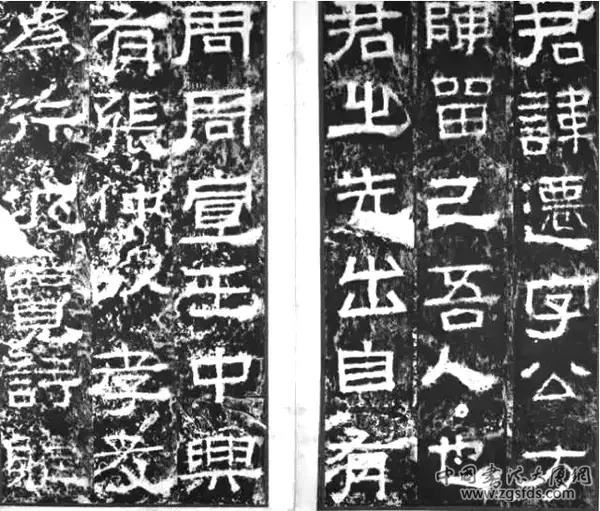 君諱遷字公方
陳留己吾人也
君之先出自有
周周宣王中興
有張仲以孝友
為行披覽詩雅
www.zgsfds.com